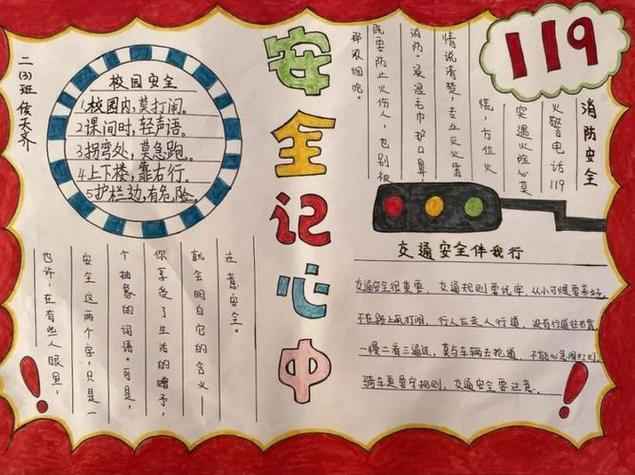 二(3)班 侯天齐
校园安全
1.校园内,莫打闹。
2课间时,轻声语。
3拐弯处,莫急跑。
4上下楼,靠右行。
5护栏边,有危险。
安全记心中
119
消防安全
火警电话119
突遇火灾心莫
慌,方位火
情说清楚,
消防。湿毛巾护口鼻,
既要防止火伤人,也别被
那浓烟呛。
交通安全伴我行
交通安全很重要,交通规则要记牢,从小
不在路上乱打闹,行人应走人行道,没有行道往右靠
一慢二看三通过,莫与车辆去抢道,不能心急闯红灯
骑车更要守规则,交通安全要注意。
也许,在有些人眼里,
安全这两个字,只是一
个抽象的词语。可是,
你享受了生活的赠予,
就会明白它的含义——
注意安全。